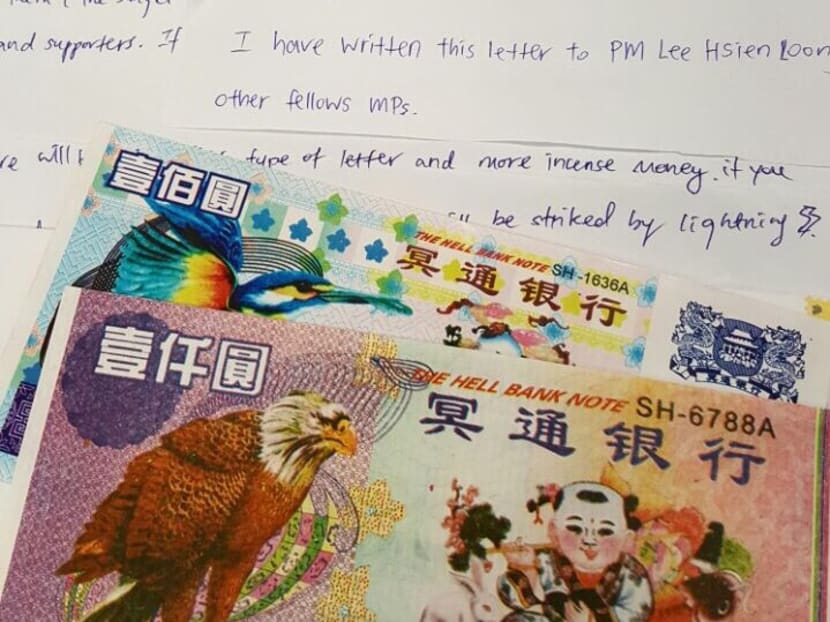 and supporters. If
I have written this letter to PM Lee Hsien Loon
other fellows MPs.
type of letter and more incense money. if you
be striked by lightning
壹佰圓
THE HELL BANK NOTE SH-1636A
冥通银行
壹仟圓
THE HELL BANK NOTE SH-6788A
冥通银行